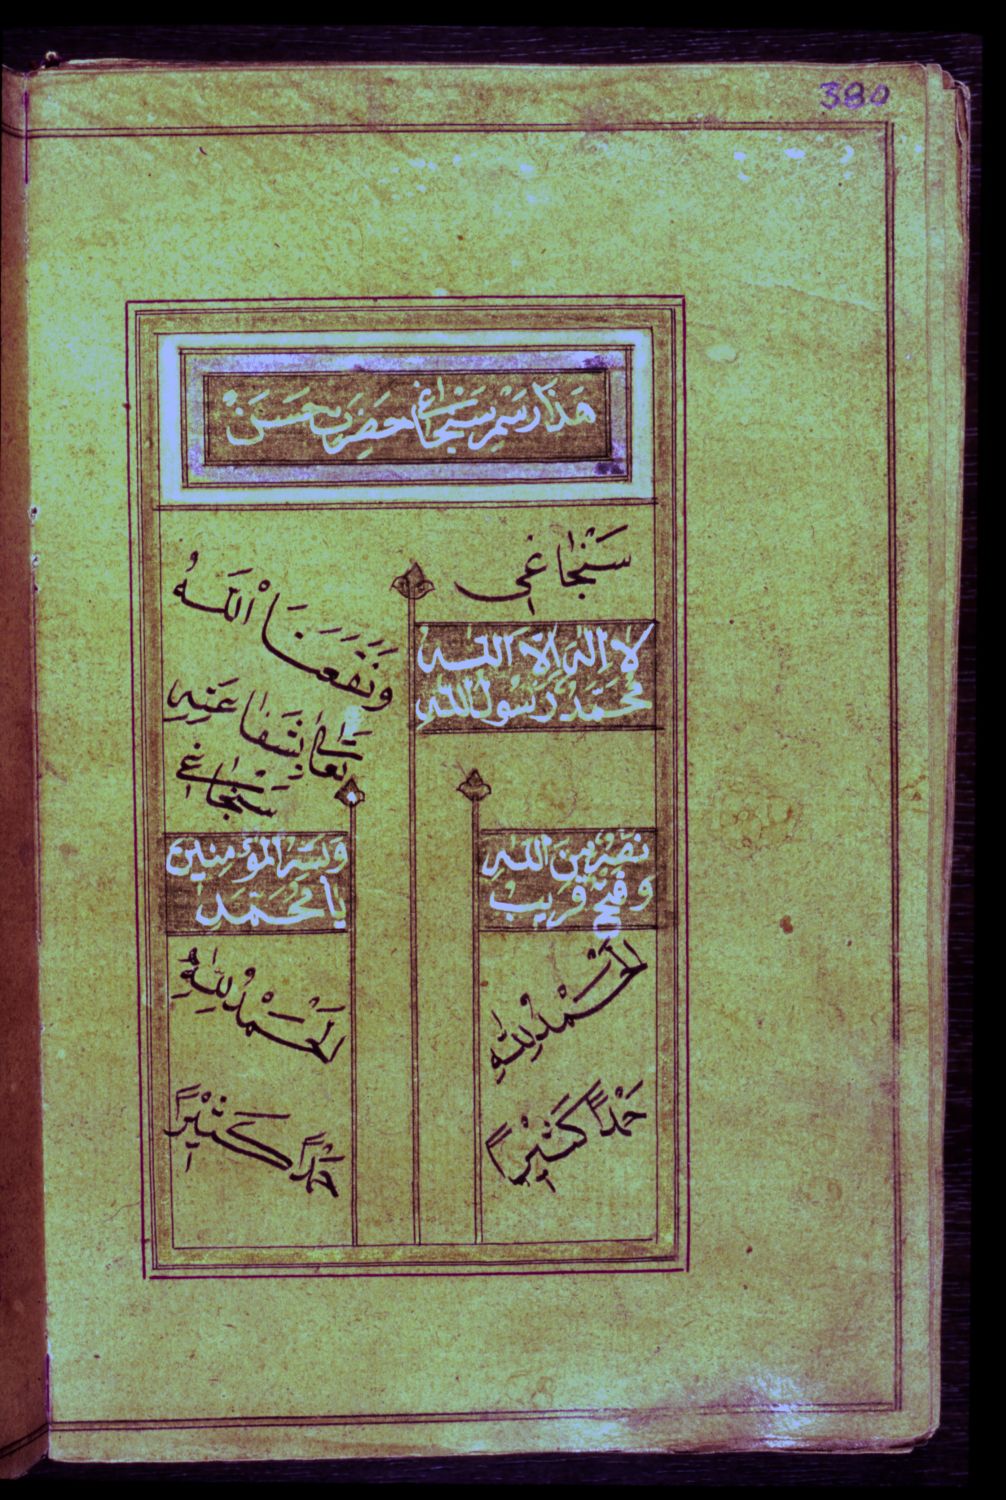 380
هَذَا رَسْمِ سَنْجَاغِ حَضِرَتِ حَسَنْ
سَنْجَاغِي
لا اله الا الله
مُحَمَّدْ رَسُولُ الله
وَنَفَعَنَا اللّهُ
تعالى بشفاعَتِهِ
سَنْجَاغِي
نَصْرٌ مِنَ اللهِ
وَفَتْحٌ قَرِيبْ
وَبَشِّرِ المُؤْمِنِينَ
يا مُحَمَّدْ
الحَمْدُ لِلّهِ
حَمْدًا كَثِيْرًا
الحَمْدُ لِلّهِ
حَمْدًا كَثِيْرًا